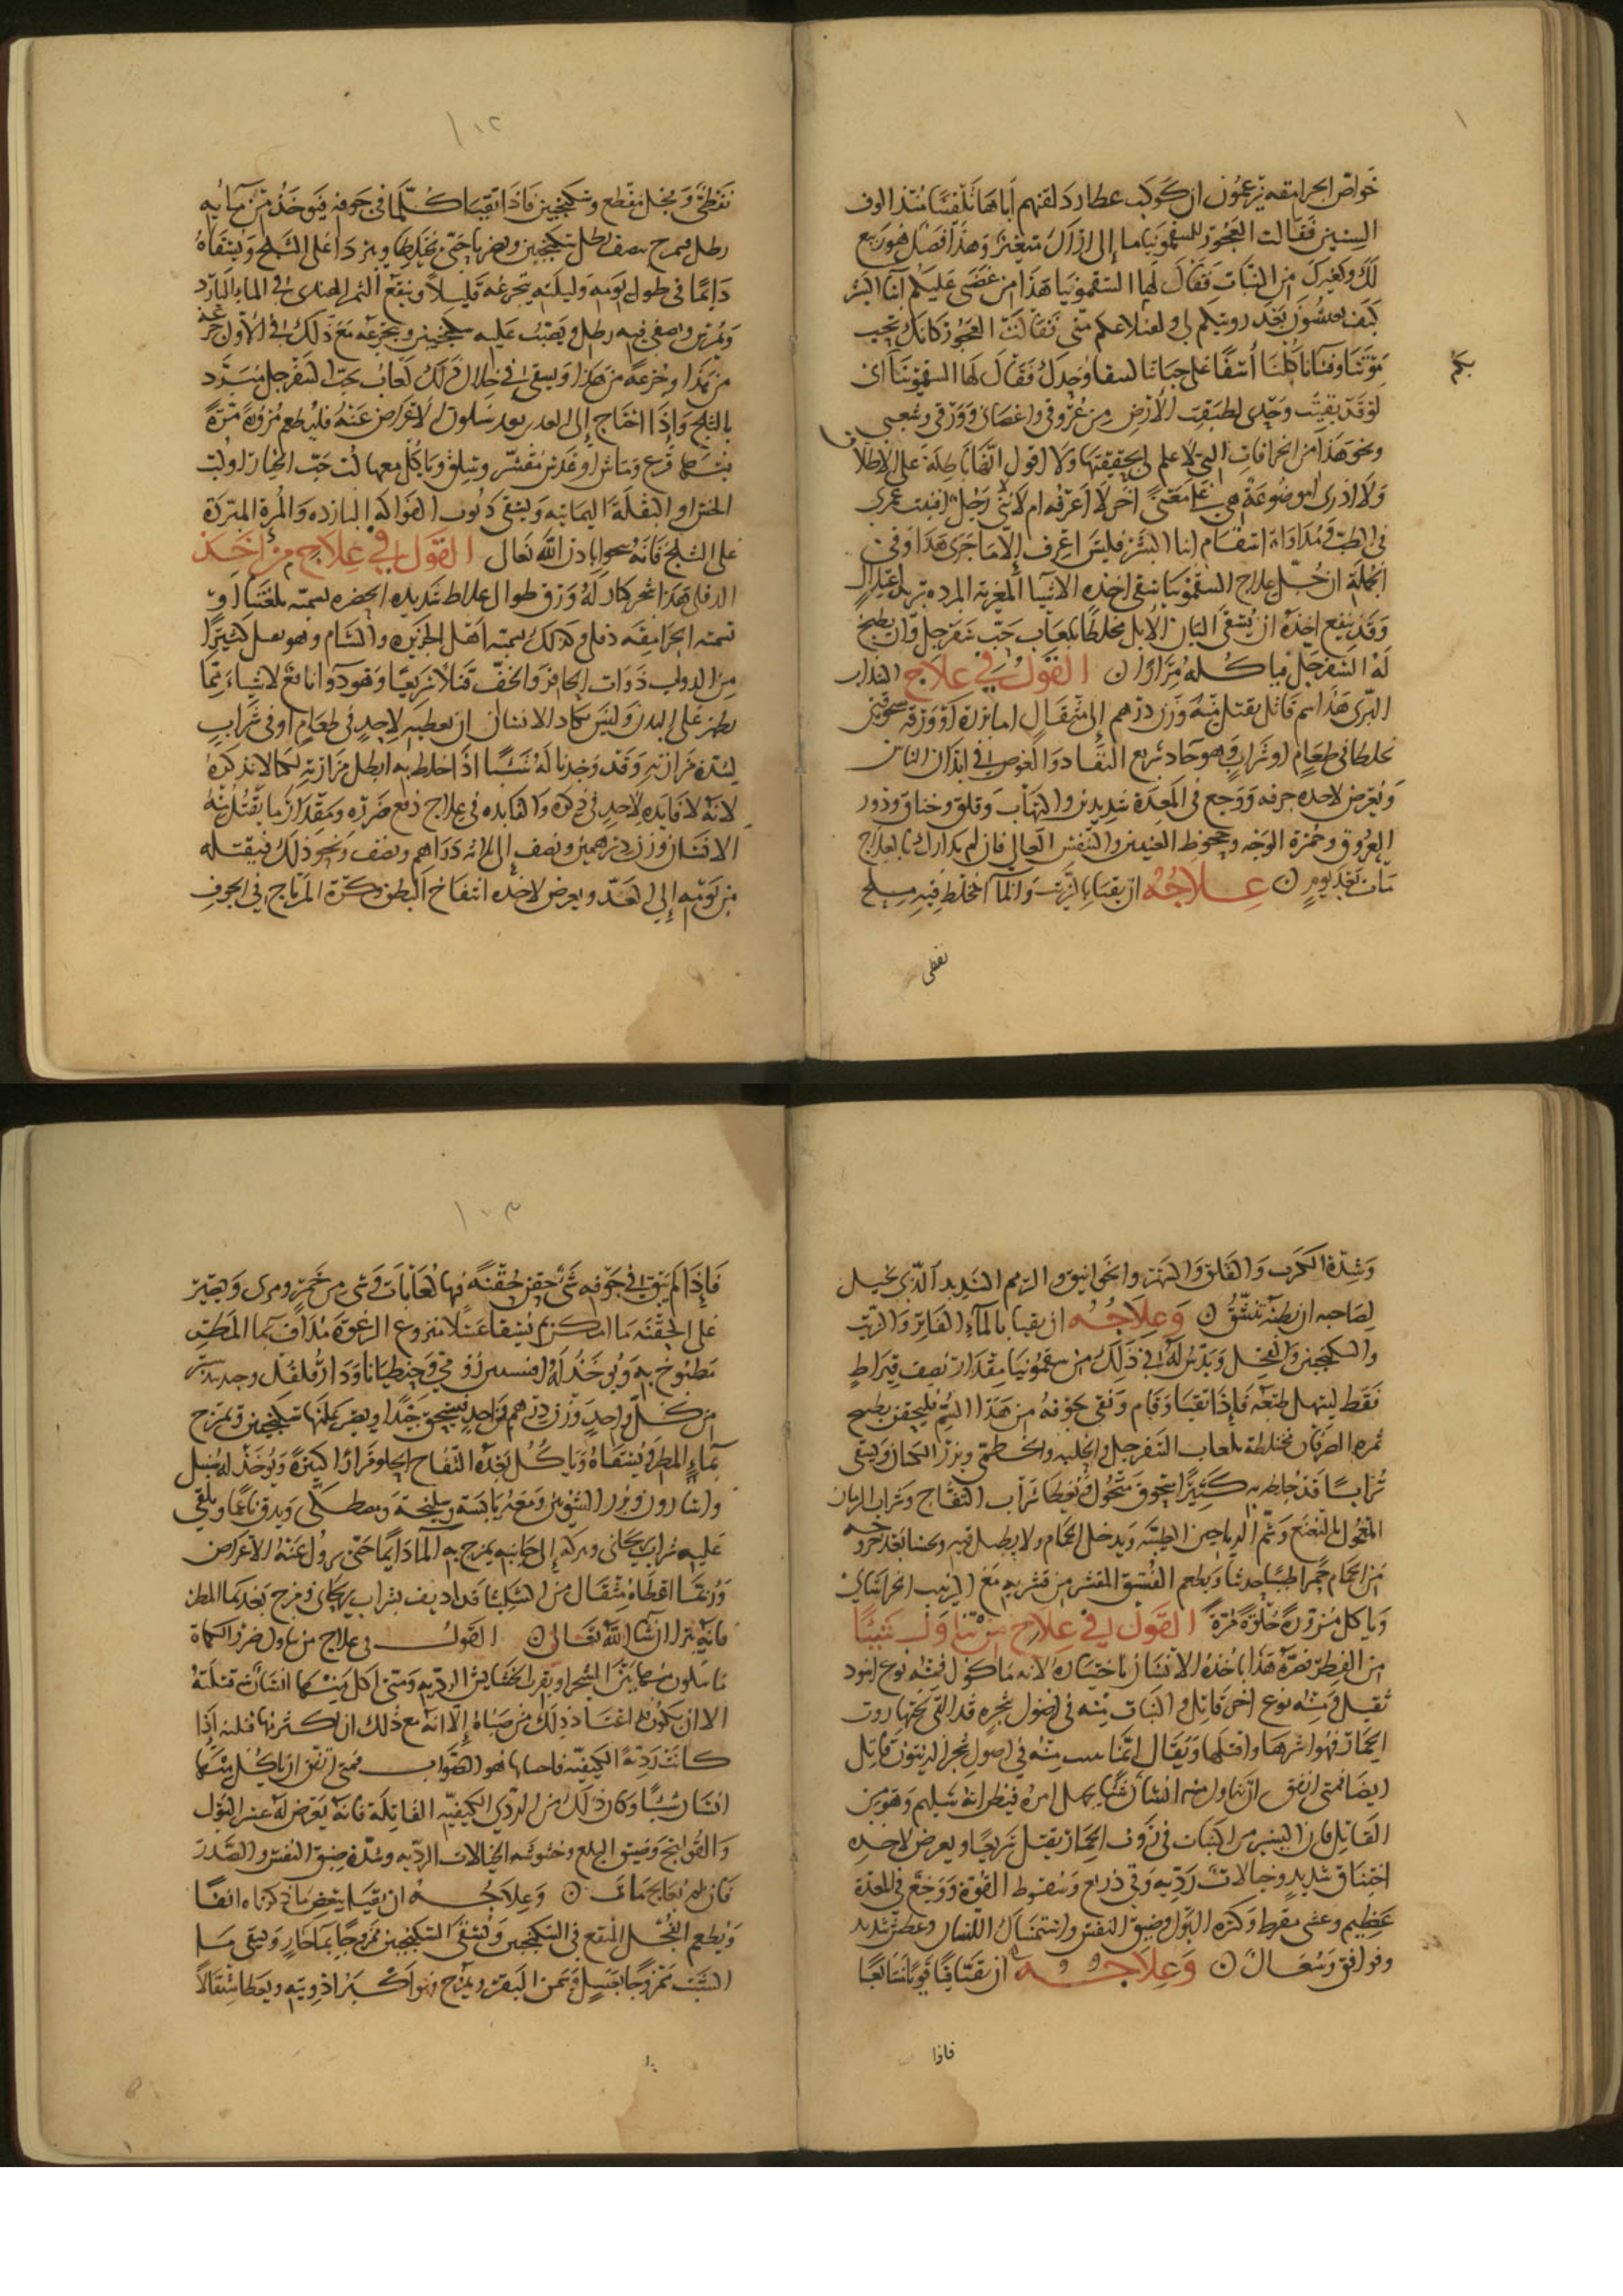 خواص الجرامقه يزعمون ان كوكب عطارد لقنهم اياها تلقينا منذ الوف
السنين فقالت العجوز للسقمونيا ما إلى اراك متغيرا وهذا فصل هو ربيع
لك ولغيرك من النبات فقال لها السقمونيا هذا من غضبي عليكم ابنا البشر
كيف تعيشون بعد رويتكم لى ولفعلاعكم متى فقالت العجوز كانك تحب
بكم
موتنا وفنانا كلنا أسفا على حياتنا لتبقا وحدك فقال لها السقمونيا اى
لو قد بقيت وحدى لطبقت الأرض من عروقى واغصانى وورقى وشعبى
ونحو هذا من الخرافات التى لا علم لى بحقيقتها ولا اقول انها باطلة على الاطلاق
ولا ادرى اموضوعة هى على معنى اخر لا اعرفه ام لا لانى رجل افنيت عمرى
فى الطب ومداواة اسقام ابنا البشر فليس اعرف إلا ما جرى هذا وفى
الجملة ان كل علاج السقمونيا بسقى اخذه الاشيا المغرية المبرده تبريدا باعتدال
وقد ينفع اخذه ان يسقى البان الابل مخلطا بلعاب حب سفرجل وان يطبخ
له السفرجل فياكله مرارا ن القول في علاج السداب
البرى هذا سم قاتل يقتل منه وزن درهم إلى مثقال اما بزره او ورقه مسحوقين
يخلطا فى طعام او شراب وهو حاد سريع النفاد والغوص فى ابدان الناس
ويعرض لاخذه حرقه ووجع فى المعدة شديدين والتهاب وقلق وخناق ودرور
العروق وحمرة الوجه وجحوظ العينين والنفس العالى فان لم يتدارك بالعلاج
مات بعد يوم ن علاجه ان يقيا بالزيت والما المخلط فيه مسلح
نفطى
١٠٢
نفطى وفجل مقطع وسكنجبين فاذا تقيا كلما فى جوفه فيوخذ من مآيه
رطل فيمرج بنصف رطل سكنجبين ويضربا حتى يختلطا ويبردا على الثلج ويسقاه
دايما فى طول يومه وليلته يتجرعه قليلا وينقع التمر الهندى فى الماء البارد
ويمرس ويصفى فيه رطل ويصب عليه سكنجبين ويجرعه مع ذلك الاول جرعة
من هذا وجرعة من هذا ويسقى فى خلال ذلك لعاب حب السفرجل مبرد
بالثلج واذا احتاج إلى الغدا بعد سكون الاعراض عنه فليطعم مزورة مزة
بقرع وماش او عدس مقشر وسلق وياكل معها لب حب الخيار او لب
الخس او البقلة اليمانيه ويسقى ربوب الفواكه البارده والمرة المبردة
على الثلج فانه ينجو باذن الله تعالى القول في علاج من اخذ
الدفلى هذا شجر كبار له ورق طوال غلاظ شديده الخضره يسميه بلغتنا
تسميه الجرامقه دفلى وكذلك يسميه اهل الجزيره والشام وهو يقتل كثيرا
من الدواب ذوات الحافر والخف قتلا سريعا وهو دوآ نافع لاشياء مما
يظهر على البدن وليس يكاد الانسان ان يعطيه لاحد فى طعام او فى شراب
لشدة مرارته وقد وجدنا له شيا اذا خلط به ابطل مرارته لكنا لا نذكره
لانه لا فايده لاحد فى ذكره والفايده فى علاج دفع ضرره ومقدار ما يقتل منه
الانسان وزن درهمين ونصف إلى ثلاثه دراهم ونصف ونحو ذلك فيقتله
من يومه إلى الغد ويعرض لاخذه انتفاخ البطن وكثرة الرياح في الجوف
وشدة الكرب والقلق والسهر والخوانيق والزحم الشديد الذى يخيل
لصاحبه ان بطنه تنشق ن وعلاجه ان يقيا بالمآء الفاتر والزيت
والسكنجبين والفجل ويدس له فى ذلك من سقمونيا مقدار نصف قيراط
فقط ليتهل طبعه فإذا تقيا وقام ونقى جوفه من هذا السم فليحقن بطبيخ
ثمره الطرفان مختلطة بلعاب السفرجل والحلبه والخطمى وبزر الكتان ويسقى
شرابا قد خلط به كثيرا مسحوق منخول ويعطا شراب التفاح وشراب الرمان
المعمول بالنعنع وشم الرياحين الطيبة ويدخل الحمام ولا يطل فيه وبحسا بعد خروجه
من الحمام خميرا طبيا حديثا ويطعم الفستق المقشر من قشريه مع الزبيب الخراسانى
وياكل مزورة حلوة مزة القول في علاج من تناول شيئا
من الفطر نقره هذا ياخذه الانسان باختياره لانه ماكول فمنه نوع اسود
ثقيل ومنه نوع اخر قاتل والنبات منه فى اصول شجره قد القى تحتها روث
الحمار فهو اشرها واقتلها ويقال ان ما ينبت منه في اصول شجر الزيتون قاتل
ايضا فمتى اتفق ان تناول منه انسان شيا يجهل امره فيظن انه سليم وهو من
القاتل فان اليسير من النبات فى روث الحمار يقتل سريعا ويعرض لاخذه
اختناق شديد وخيالات رديه وقى ذريع وسقوط القوة ووجع في المعدة
عظيم وغشى مفرط وكثره البول وضيق النفس واستمساك اللسان وعطش شديد
وفواق وسعال ن وعلاجه ان يتقيا قيا قويا متتابعا
فاذا
١٠٣
فإذا لم يبق فى جوفه شى حقن حقنة فيها لعابات وشى من خمر ومرى ويصبر
على الحقنه ما امكن ثم يسقا عسلا منزوع الرغوة مدافا بما المطر
مطبوخ به ويوخذ له افسنتين رومى وجنطيانا ودار فلفل وجندبيدستر
من كل واحد وزن درهم واحد فيسحق جيدا ويصير عليها سكنجبين ويمزج
بماء المطر ويسقاه وياكل بعده التفاح الحلو مرارا كثيرة ويوخذ له سنبل
واسارون وبزر الشونيز وصعتر يابسة وسليخة ومصطكى ويدق ناعما ويلقى
عليه شراب ريحانى ويترك إلى جانبه يمزج به الما دايما حتى يزول عنه الاعراض
وربما اعطاه مثقال من الشليثا قد اديف بشراب ريحانى ومزج بعد بما المطر
فانه يبرا ان شا الله تعالى ن القول فى علاج من تناول ضرر الكماة
ما يتلون منها بين الشجر او بقرب الخشايش الرديه ومتى اكل منها انسان قتلته
الا ان يكون قد اعتاد ذلك من صباه إلا انه مع ذلك ان اكثر منها قتلته إذا
كانت ردية الكيفية فاحسابها هو الصواب فمتى اتفق ان ياكل منها
انسان شيا وكان ذلك من الردى الكيفيه القاتلة فانه يعرض له عسر البول
والقولنج وضيق البلع وخشونه والخيالات الرديه وشدة ضيق النفس والصدر
فان لم يعالج مات ن وعلاجه ان يقيا ببعض ما ذكرناه انفا
ويطعم الفجل المنقع فى السكنجبين ويسقى السكنجبين ممزوجا بمآ حار ويسقى ما
الشبت ممزوجا بعسل وسمن البقر ويمزج وهو اكبر ادويته ويعطا مثقالا